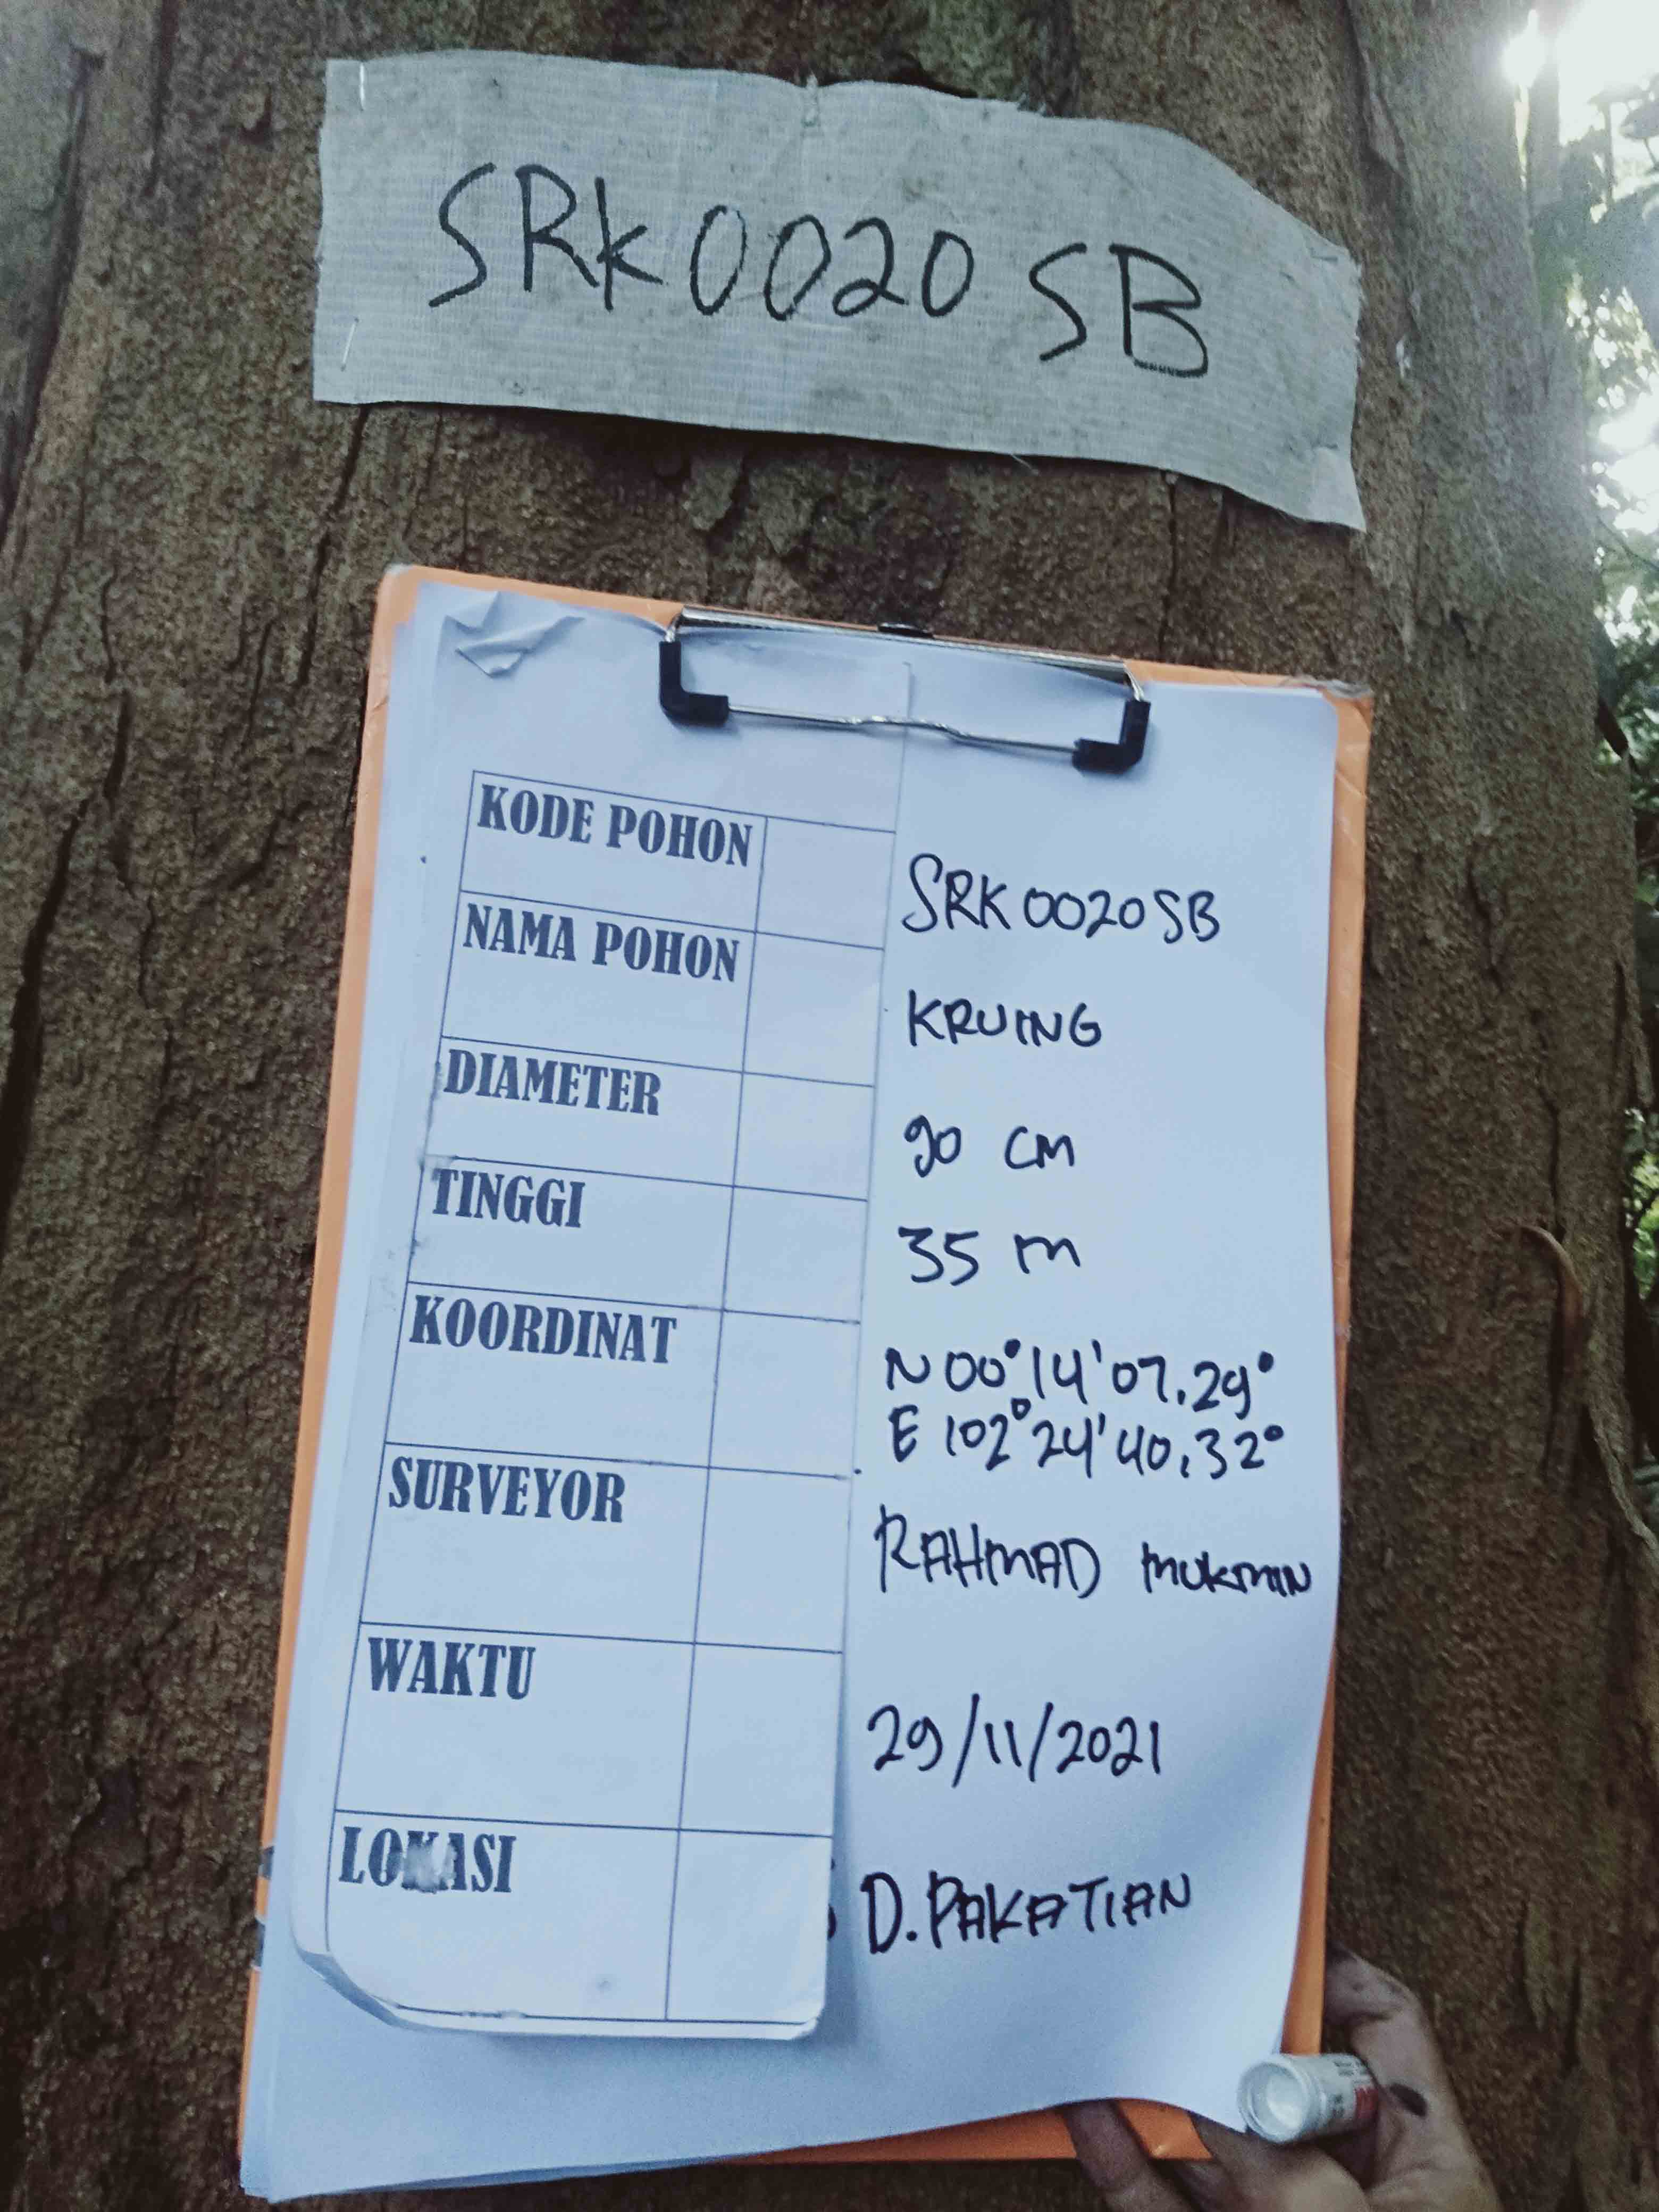 SRK0020 SB
KODE POHON SRK0020SB
NAMA POHON KRUING
DIAMETER 90 CM
TINGGI 35 m
KOORDINAT N 00°14'07.29°
E 102°24'40.32°
SURVEYOR RAHMAD MUKMIN
WAKTU 29/11/2021
LOKASI D.PAKATIAN